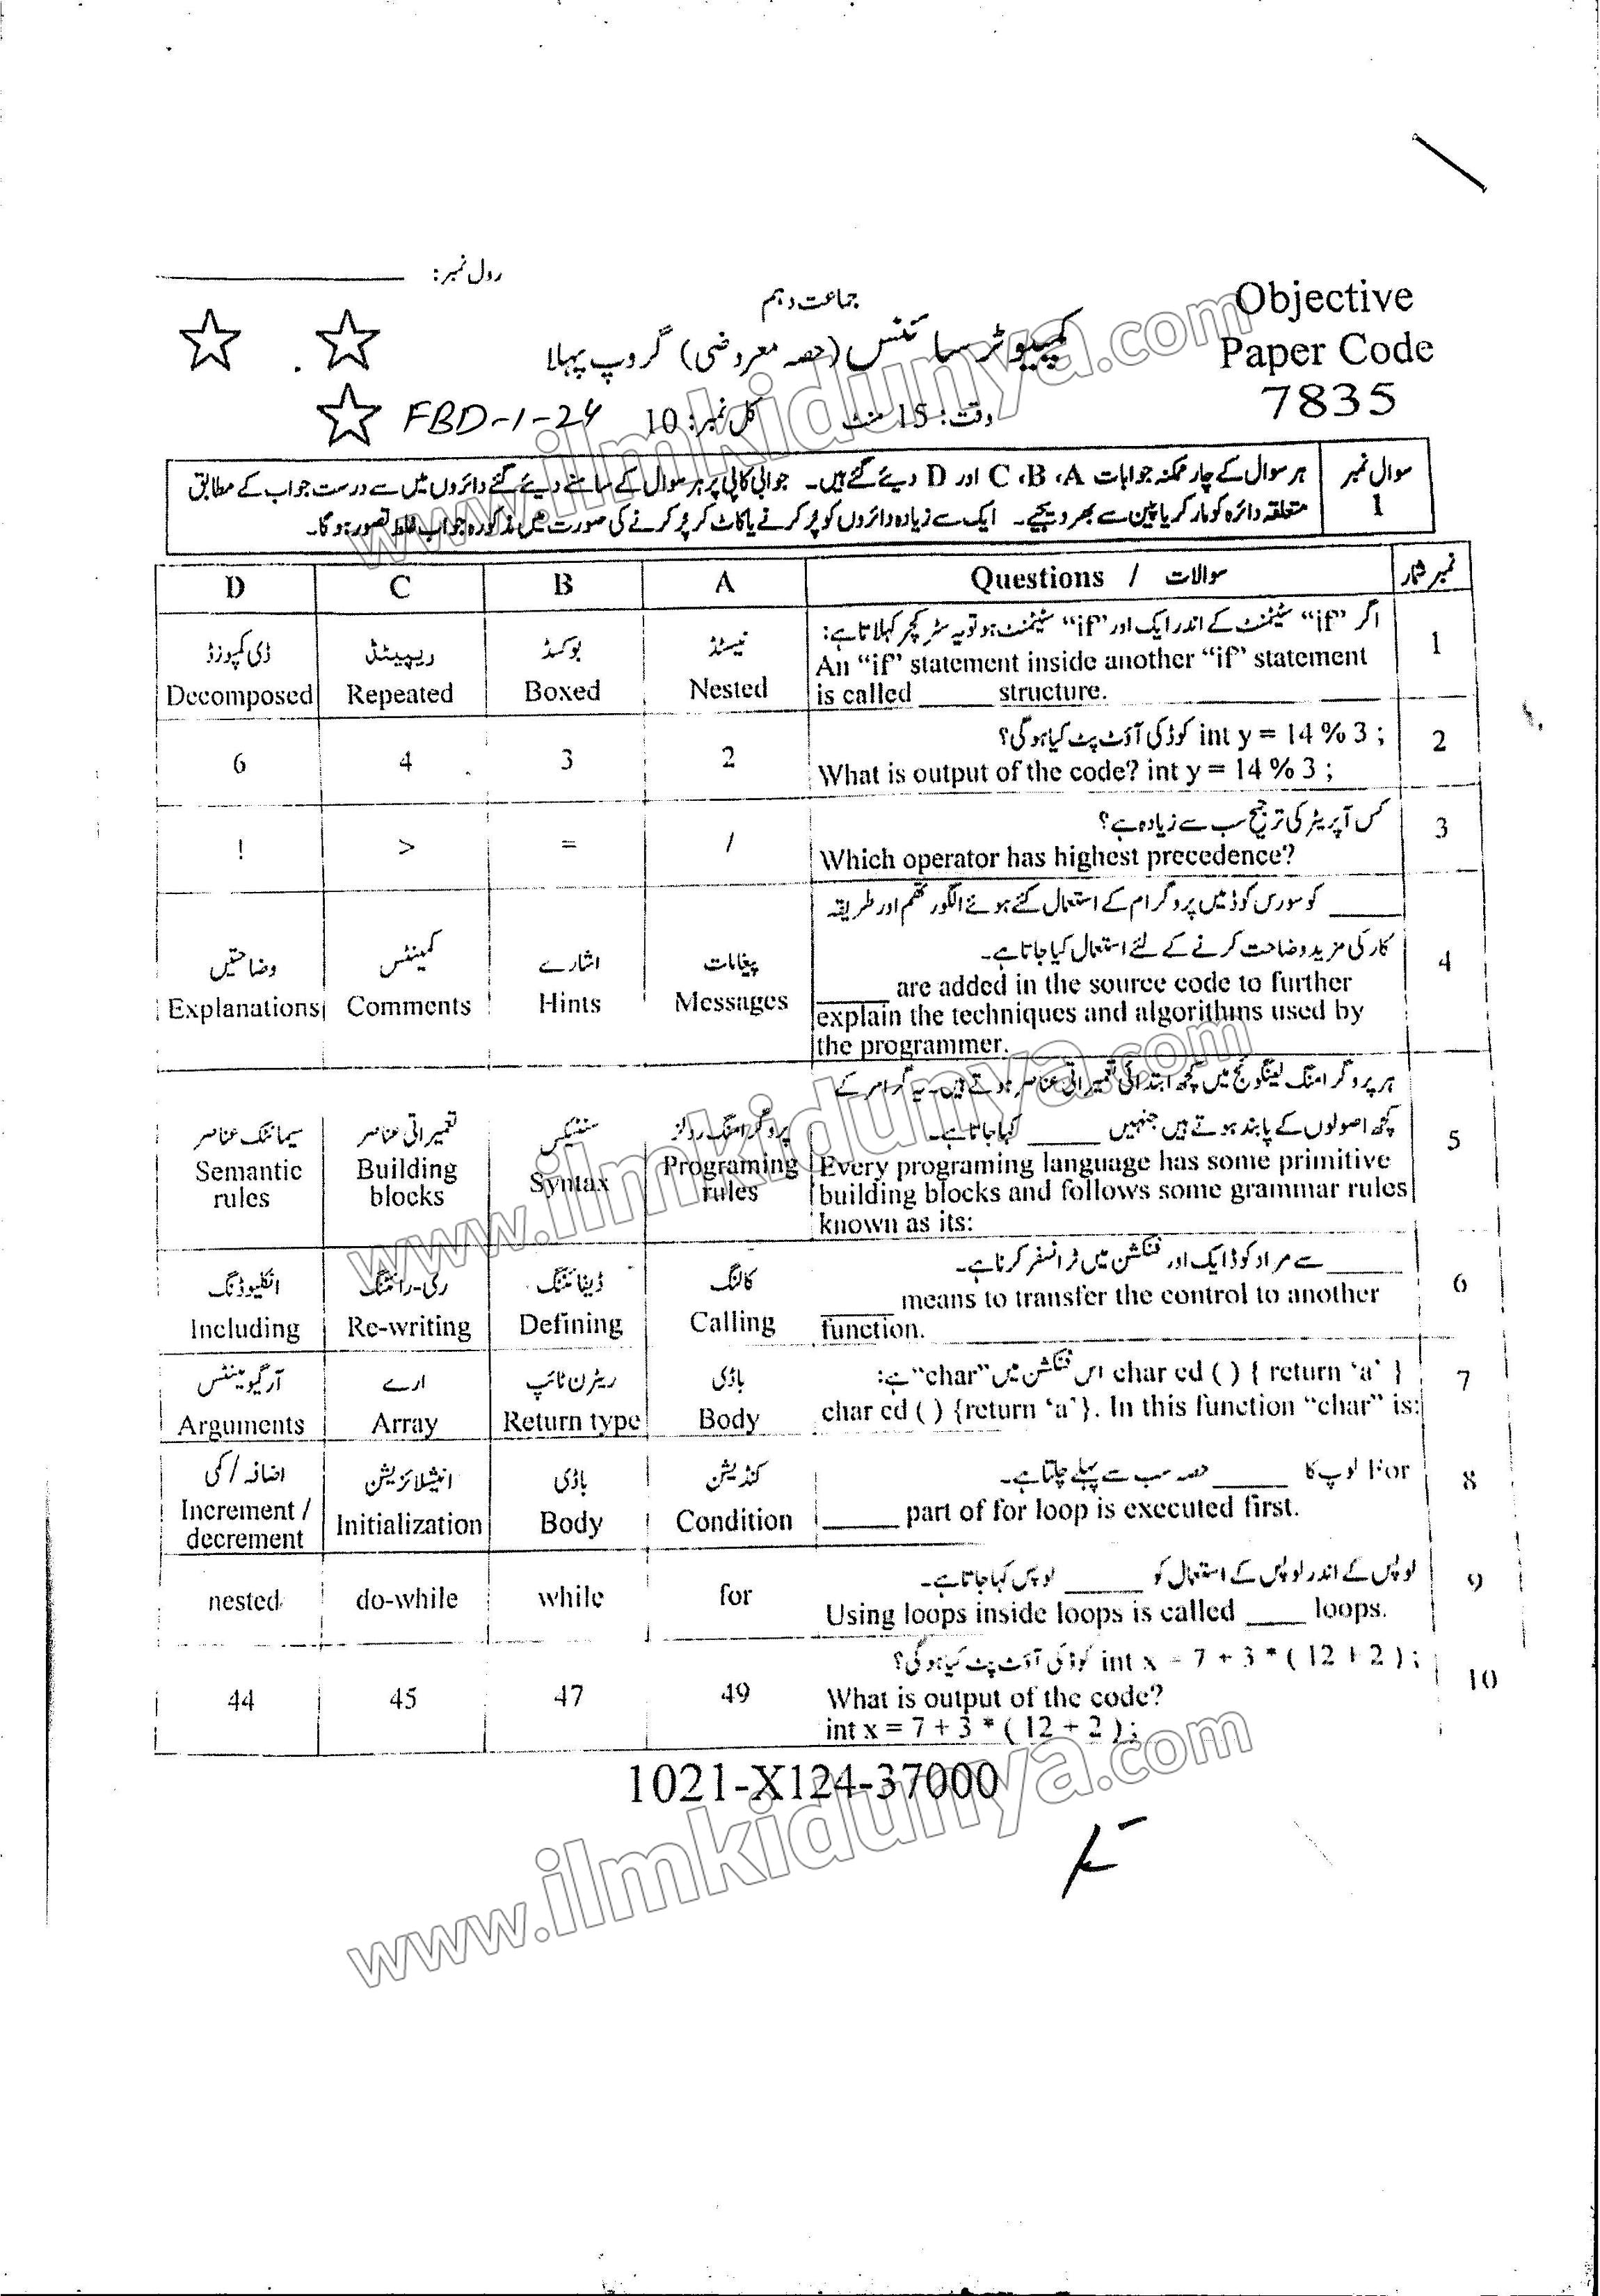 رول نمبر: ________
جماعت دہم
کمپیوٹر سائنس (حصہ معروضی) گروپ پہلا
وقت: 15 منٹ کل نمبر: 10
FBD-1-24
Objective
Paper Code
7835
سوال نمبر 1
ہر سوال کے چار ممکنہ جوابات A، B، C اور D دیئے گئے ہیں۔ جوابی کاپی پر ہر سوال کے سامنے دیئے گئے دائروں میں سے درست جواب کے مطابق
متعلقہ دائرہ کو مارکر یا پین سے بھر دیجیے۔ ایک سے زیادہ دائروں کو پُر کرنے یا کاٹ کر پُر کرنے کی صورت میں مذکورہ جواب غلط تصور ہوگا۔
نمبر شمار سوالات / Questions A B C D
1
اگر "if" سٹیٹمنٹ کے اندر ایک اور "if" سٹیٹمنٹ ہو تو یہ سٹرکچر کہلاتا ہے:
An “if” statement inside another “if” statement
is called _____ structure.
نیسٹڈ بوکسڈ ریپیٹڈ ڈی کمپوزڈ
Nested Boxed Repeated Decomposed
2
int y = 14 % 3 ; کوڈ کی آؤٹ پٹ کیا ہوگی؟
What is output of the code? int y = 14 % 3 ;
2 3 4 6
3
کس آپریٹر کی ترجیح سب سے زیادہ ہے؟
Which operator has highest precedence?
/ = > !
4
_____ کو سورس کوڈ میں پروگرام کے استعمال کئے ہوئے الگورتھم اور طریقہ
کار کی مزید وضاحت کرنے کے لئے استعمال کیا جاتا ہے۔
_____ are added in the source code to further
explain the techniques and algorithms used by
the programmer.
پیغامات اشارے کمینٹس وضاحتیں
Messages Hints Comments Explanations
5
ہر پروگرامنگ لینگوئج میں کچھ ابتدائی تعمیراتی عناصر ہوتے ہیں۔ یہ گرامر کے
کچھ اصولوں کے پابند ہوتے ہیں جنہیں _____ کہا جاتا ہے۔
Every programing language has some primitive
building blocks and follows some grammar rules
known as its:
پروگرامنگ رولز سنٹیکس تعمیراتی عناصر سیمانٹک عناصر
Programing rules Syntax Building blocks Semantic rules
6
_____ سے مراد کوڈ ایک اور فنکشن میں ٹرانسفر کرنا ہے۔
_____ means to transfer the control to another
function.
کالنگ ڈیفائننگ ری-رائٹنگ انکلیوڈنگ
Calling Defining Re-writing Including
7
char cd ( ) { return ‘a’ } اس فنکشن میں "char" ہے:
char cd ( ) {return ‘a’}. In this function “char” is:
باڈی ریٹرن ٹائپ ارے آرگیومینٹس
Body Return type Array Arguments
8
For لوپ کا _____ حصہ سب سے پہلے چلتا ہے۔
_____ part of for loop is executed first.
کنڈیشن باڈی انیشلائزیشن اضافہ / کمی
Condition Body Initialization Increment / decrement
9
لوپس کے اندر لوپس کے استعمال کو _____ لوپس کہا جاتا ہے۔
Using loops inside loops is called ____ loops.
for while do-while nested
10
int x = 7 + 3 * ( 12 + 2 ) ; کوڈ کی آؤٹ پٹ کیا ہوگی؟
What is output of the code?
int x = 7 + 3 * ( 12 + 2 ) ;
49 47 45 44
1021-X124-37000
www.ilmkidunya.com
www.ilmkidunya.com
www.ilmkidunya.com